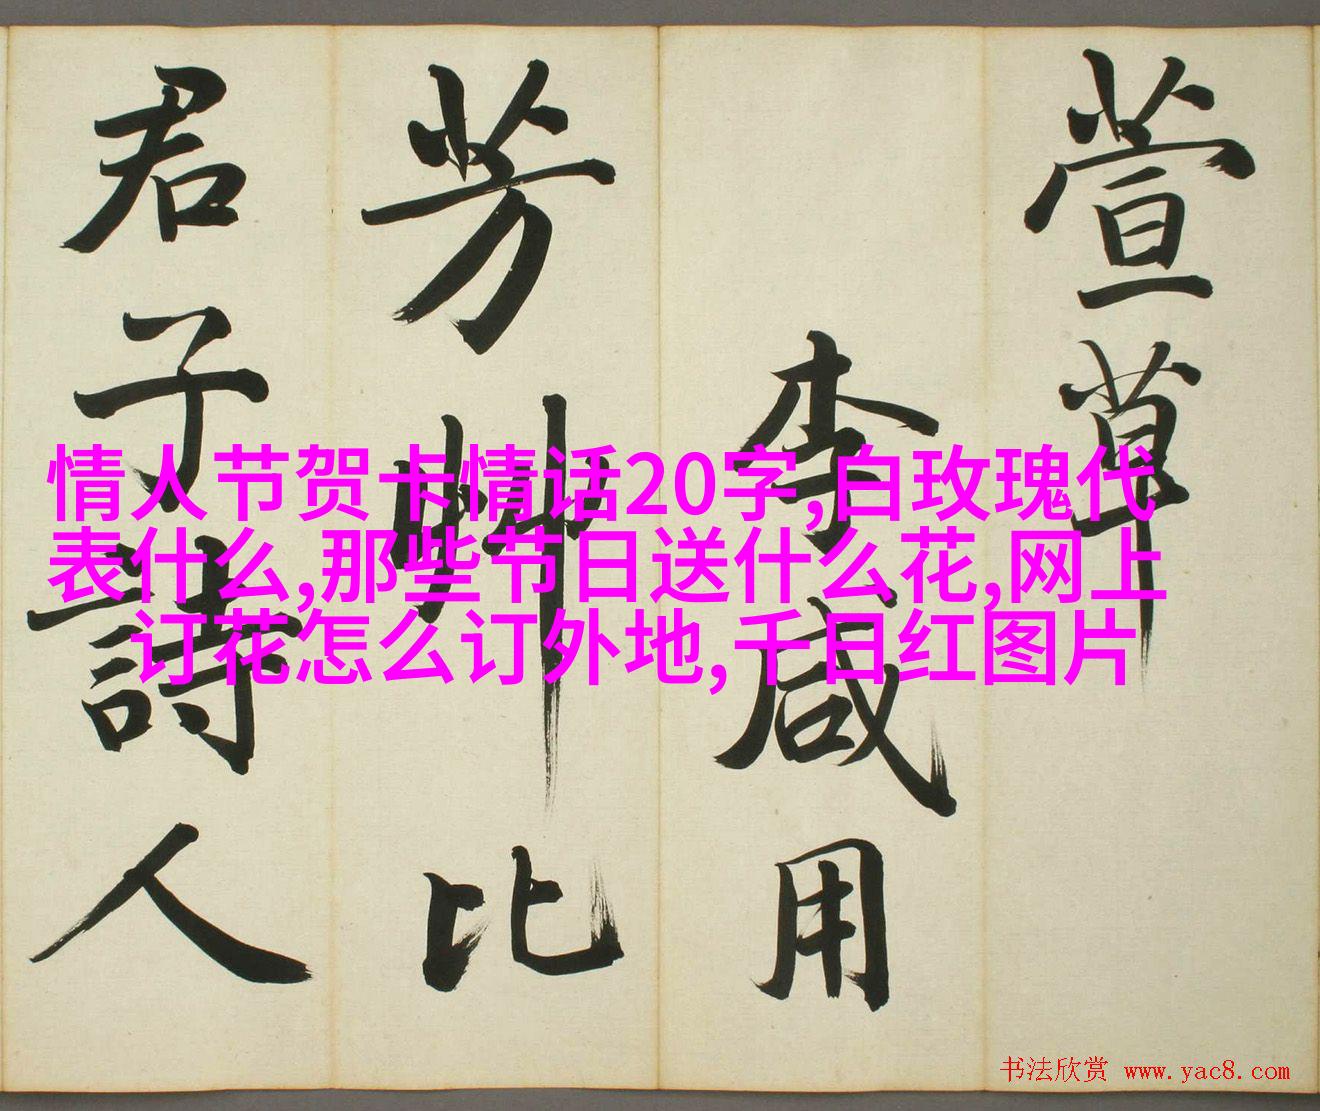 萱草
李咸用
芳艸比
君子詩人
情人节贺卡情话20字,白玫瑰代
表什么,那些节日送什么花,网上
订花怎么订外地,千日红图片
书法欣赏 www.yac8.com